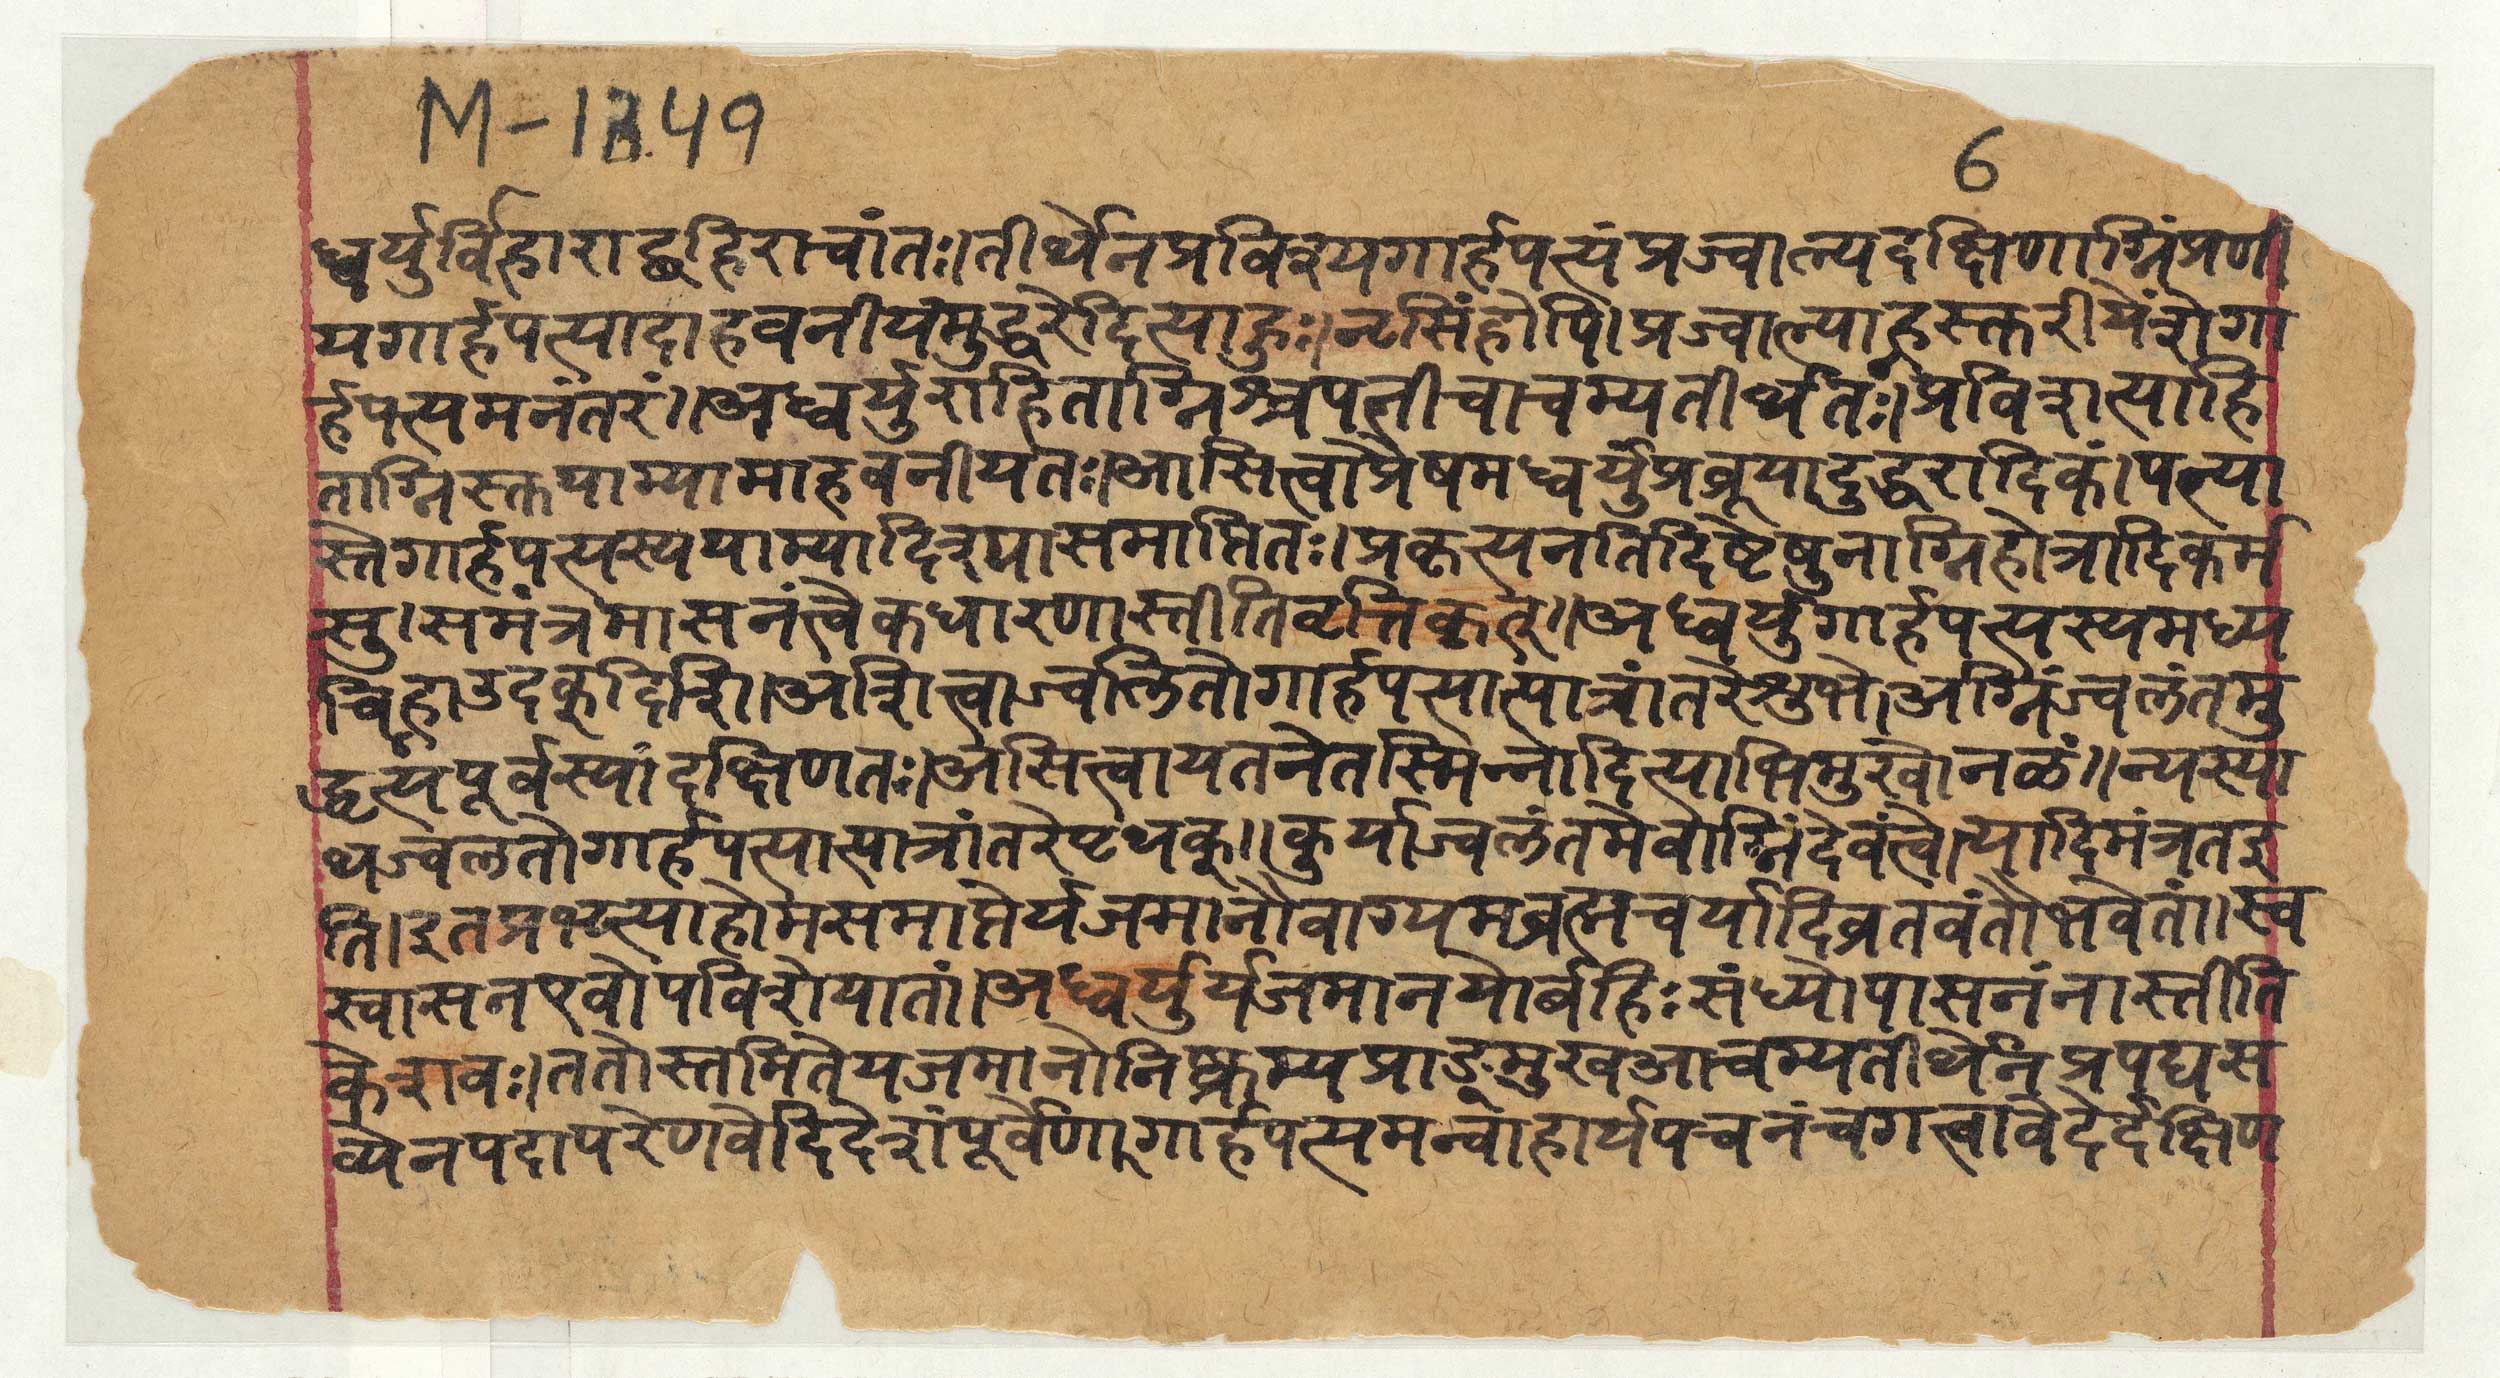 M-1349
6
ध्वर्युर्विहाराद्बहिराचांतः।तीर्थेनप्रविश्यगार्हपत्यंप्रज्वाल्यदक्षिणाग्निंप्रणी
यगार्हपत्यादाहवनीयंमुद्धरेदित्याहुः।नृसिंहोपि।प्रज्वाल्याहस्तरीयेंशेगा
र्हपत्यमनंतरं॥अध्वर्युराहिताग्निश्चपत्नीचाचम्यतीर्थतः।प्रविशत्याहि
ताग्निस्तयाम्यामाहवनीयतः।आसित्वाप्रैषमध्वर्युंप्रब्रूयादुद्धरादिकं।पत्न्या
स्तेगार्हपत्यस्ययाम्यादिश्यासमाप्तितः।प्रकृत्यनतिदिष्टेषुनाग्निहोत्रादिकर्म
सु।समंत्रमासनंत्वैकधारणास्तीतिवृत्तिकृत्॥अध्वर्युगार्हपत्यस्यमध्य
न्विहाउदकूदिशि।अशित्वाज्वलितोगार्हपत्यात्पात्रांतरेशुभे।अग्निंज्वलंतमु
द्धृत्यपूर्वस्यांदक्षिणतः।असित्वायतनेतस्मिन्नादित्याभिमुखोनळं॥न्यस्या
थज्वलतोगार्हपत्यात्पात्रांतरेपृथक्॥कुर्याज्वलंतमेवाग्निंदेवंत्वे।त्यादिमंत्रतइ
ति।इतप्रभृत्याहोमसमाप्तेर्यजमानौवाग्यमब्रह्मचर्यादिव्रतवंतौभवेतां।स्व
स्वासनएवोपविशेयातां।अध्वर्युर्यजमानयोर्बहिःसंध्योपासनंनास्तीति
केशवः।ततोस्तमितेयजमानोनिष्क्रम्यप्राङ्मुखआचम्यतीर्थेनप्रपद्यस
व्येनपदापरेणवेदिदेशंपूर्वेणगार्हपत्यमन्वाहार्यपचनंचगत्वावेदेर्दक्षिण